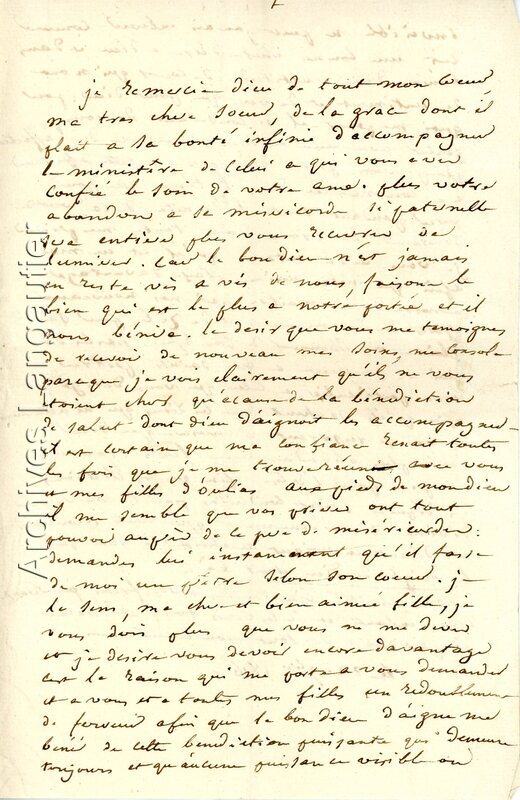 je remercie dieu de tout mon coeur
ma tres chere soeur, de la grace dont il
plait a sa bonté infinie d'accompagner
le ministère de celui a qui vous avez
confié le soin de votre ame. plus votre
abandon a sa misericorde si paternelle
sera entiere plus vous recevrez de
lumieres. car le bon dieu n'est jamais
en reste vis a vis de nous, faisons le
bien qui est le plus a notre portée et il
nous bénira. le desir que vous me temoignes
de recevoir de nouveau mes soins, me console
parceque je vois clairement qu'ils ne vous
etoient chers qu'acause de la bénédiction
de salut dont dieu d'aignoit les accompagner
il est certain que ma confiance renait toutes
les fois que je me trouve réuni avec vous
et mes filles d'oulias aux pieds de mon dieu
il me semble que vos prieres ont tout
pouvoir auprès de ce pere de miséricordes:
demandes lui instament qu'il fasse
de moi un père selon son coeur. je
le sens, ma chere et bien aimée fille, je
vous dois plus que vous ne me devez
et je desire vous devoir encore davantage
c'est la raison qui me porte a vous demander
et a vous et a toutes mes filles un redoublement
de ferveur afin que le bon dieu d'aigne me
bénir de cette benediction puissante qui demeure
toujours et qu'aucune puissance visible ou
Archives Langautier